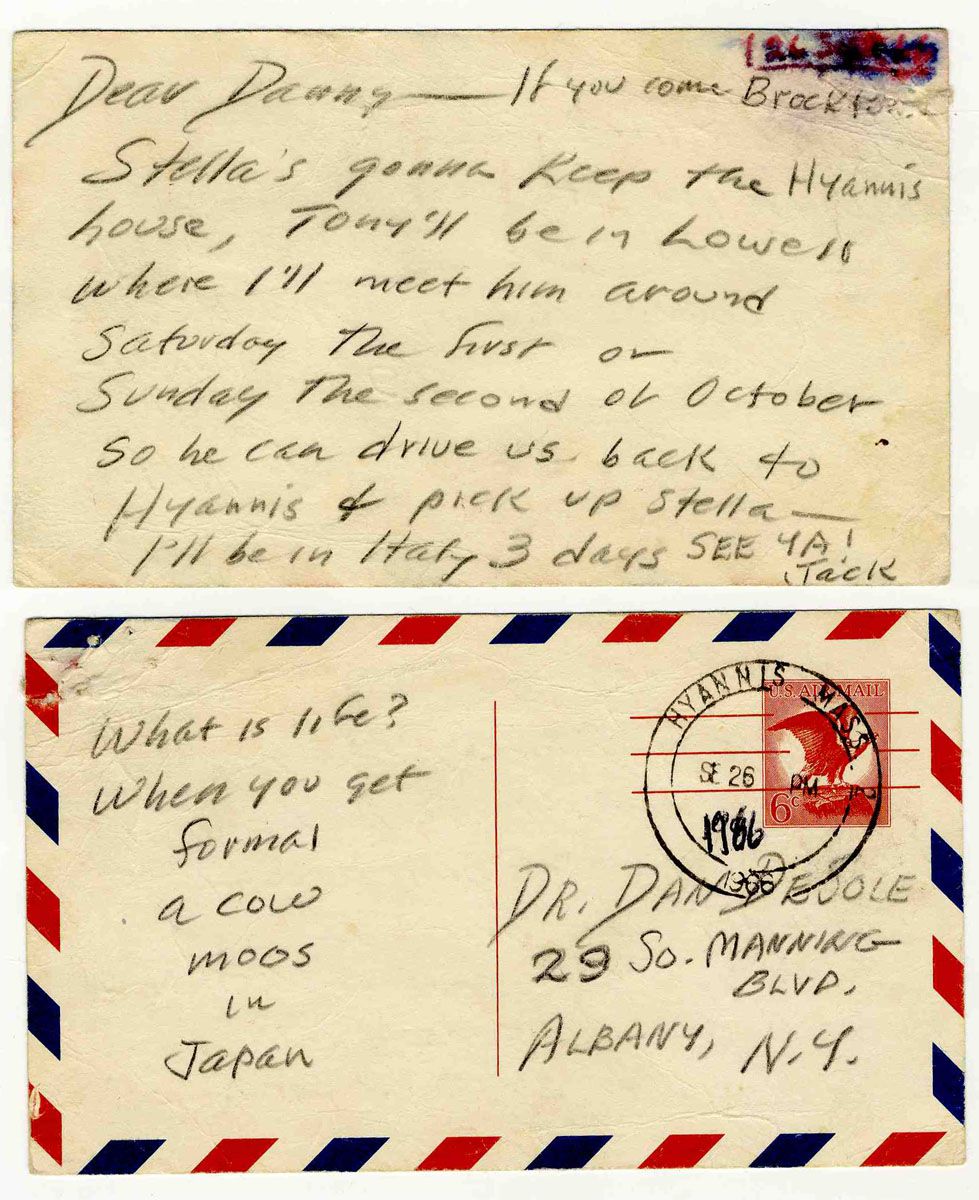 Dear Danny — If you come
Stella's gonna keep the Hyannis
house, Tony'll be in Lowell
where I'll meet him around
Saturday the first or
Sunday the second of October
so he can drive us back to
Hyannis & pick up Stella —
I'll be in Italy 3 days SEE YA!
Jack
What is life?
When you get
formal
a cow
moos
in
Japan
HYANNIS MASS.
SE 26 PM
1966
1966
U.S. AIR MAIL
6c
DR. DAN DESOLE
29 So. MANNING
BLVD.
ALBANY, N.Y.